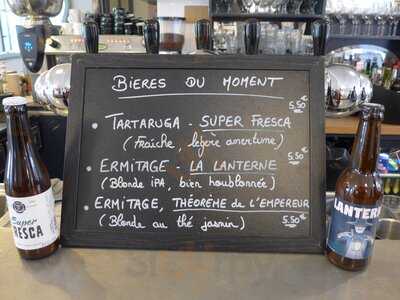 BIERES DU MOMENT
5,50€
• TARTARUGA - SUPER FRESCA
(fraîche, légère amertume)
5,50€
• ERMITAGE - LA LANTERNE
(Blonde IPA, bien houblonnée)
• ERMITAGE, THÉORÈME de L'EMPEREUR
(Blonde au thé jasmin) 5,50€
Super
FRESCA
LANTERN